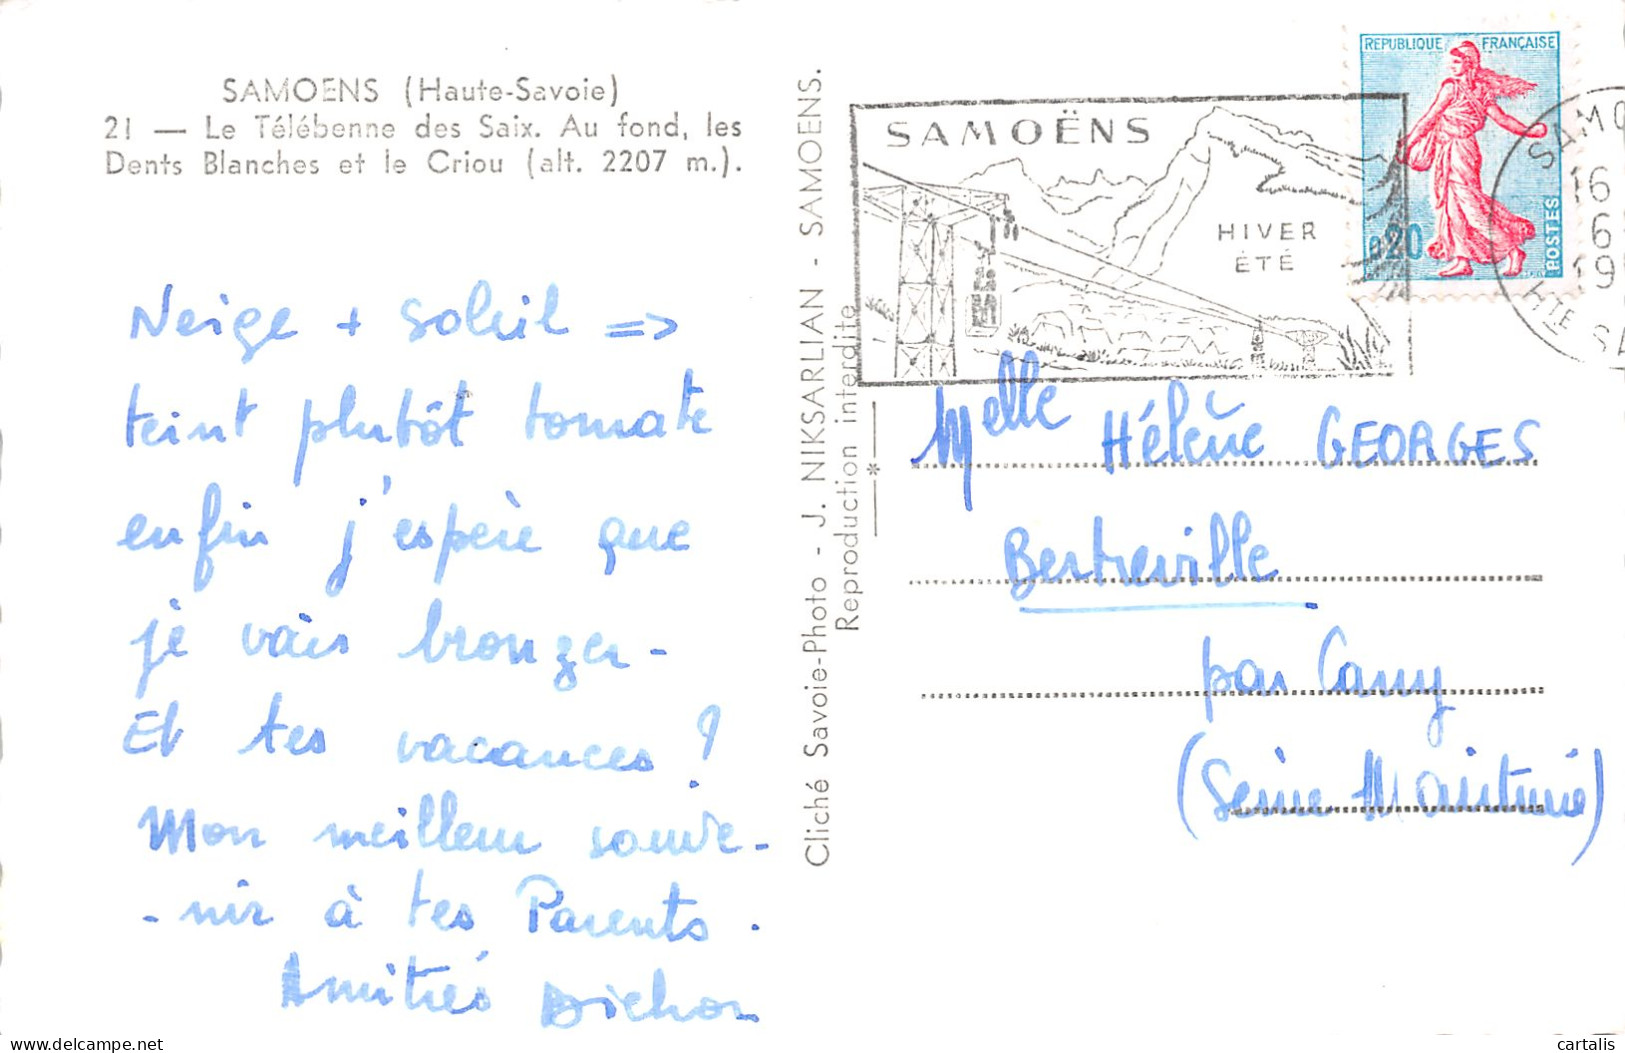 SAMOENS (Haute-Savoie)
21 — Le Télébenne des Saix. Au fond, les
Dents Blanches et le Criou (alt. 2207 m.).
Neige + soleil =>
teint plutôt tomate
enfin j'espère que
je vais bronzer -
Et tes vacances ?
Mon meilleur souve-
- nir à tes Parents.
Amitiés Bichon
Cliché Savoie-Photo - J. NIKSARLIAN - SAMOENS.
Reproduction interdite
SAMOËNS
HIVER
ÉTÉ
REPUBLIQUE FRANÇAISE
0,20
POSTES
SAMO
16
6
19
HTE SA
Melle Hélène GEORGES
Bertreville
par Cany
(Seine Maritime)
cartalis